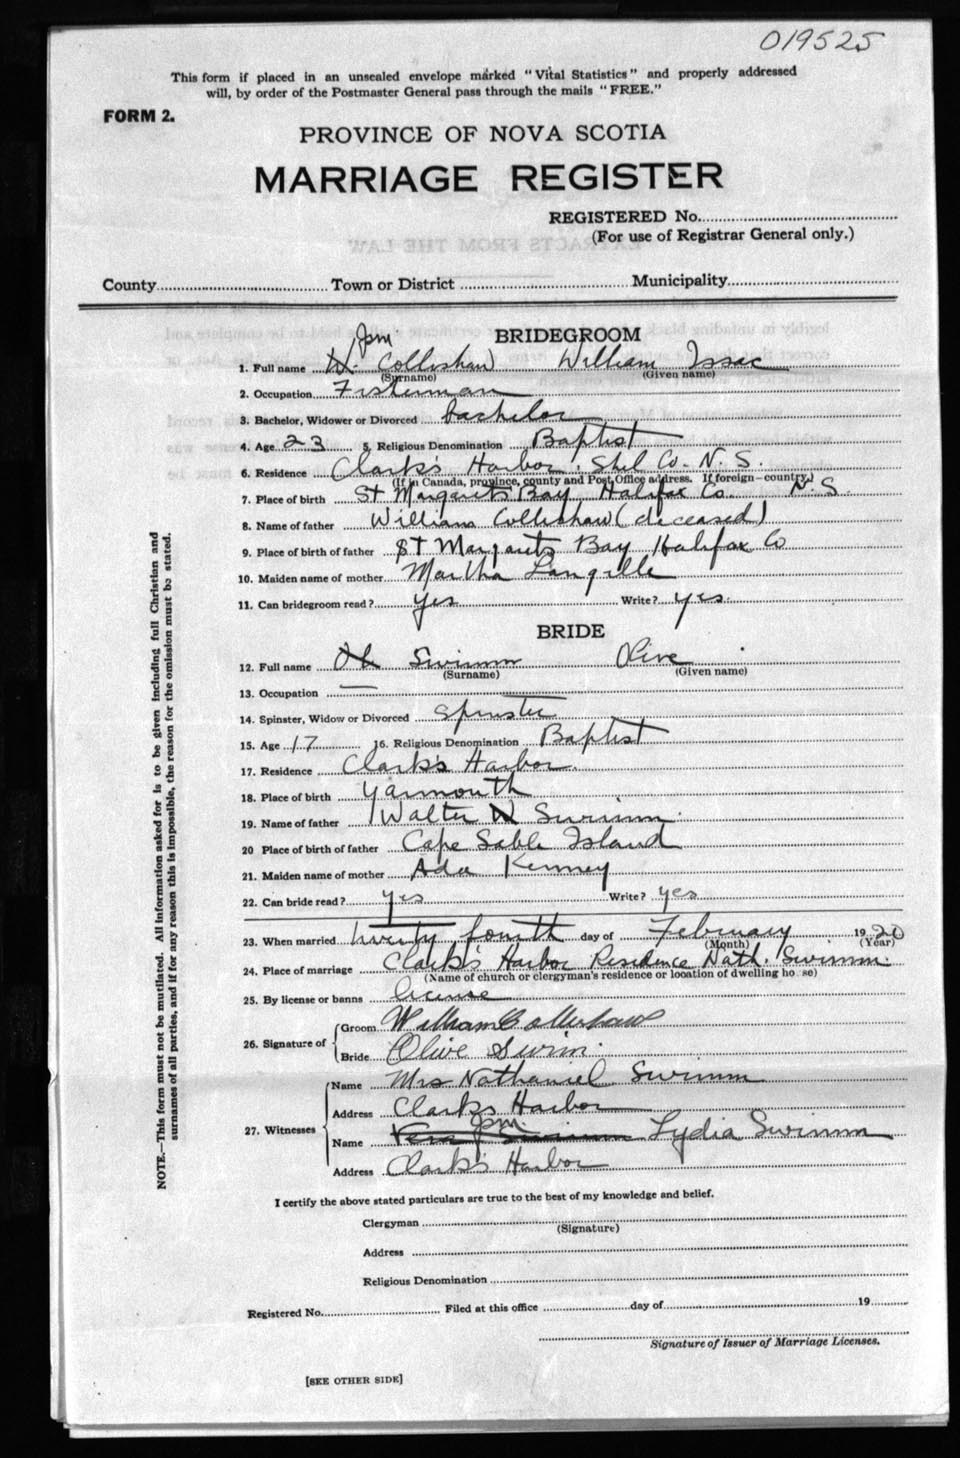 019525
This form if placed in an unsealed envelope marked "Vital Statistics" and properly addressed
will, by order of the Postmaster General pass through the mails "FREE."
FORM 2.
PROVINCE OF NOVA SCOTIA
MARRIAGE REGISTER
REGISTERED No.
(For use of Registrar General only.)
County Town or District Municipality
BRIDEGROOM
Jpm
1. Full name W. Collishaw William Issac
(Surname) (Given name)
2. Occupation Fisterman
3. Bachelor, Widower or Divorced bachelor
4. Age 23 5. Religious Denomination Baptist
6. Residence Clark's Harbor, Shel Co. N. S.
(If in Canada, province, county and Post Office address. If foreign—country)
7. Place of birth St Margarets Bay Halifax Co. N.S.
8. Name of father William Collishaw (deceased)
9. Place of birth of father St Margarets Bay Halifax Co
10. Maiden name of mother Martha Langille
11. Can bridegroom read? yes Write? yes.
BRIDE
12. Full name Swimm Olive
(Surname) (Given name)
13. Occupation —
14. Spinster, Widow or Divorced Spinster
15. Age 17 16. Religious Denomination Baptist
17. Residence Clark's Harbor.
18. Place of birth Yarmouth
19. Name of father Walter N Swimm.
20 Place of birth of father Cape Sable Island
21. Maiden name of mother Ada Kenney
22. Can bride read? yes Write? yes
23. When married twenty fourth day of February 1920
(Month) (Year)
24. Place of marriage Clark's Harbor Residence Nath. Swimm.
(Name of church or clergyman's residence or location of dwelling ho se)
25. By license or banns license
26. Signature of Groom William Collishaw
Bride Olive Swim.
27. Witnesses Name Mrs Nathaniel Swimm
Address Clarks Harbor
Jpm
Name Vera Swimm Lydia Swimm
Address Clark's Harbor
I certify the above stated particulars are true to the best of my knowledge and belief.
Clergyman
(Signature)
Address
Religious Denomination
Registered No. Filed at this office day of 19
Signature of Issuer of Marriage Licenses.
[SEE OTHER SIDE]
NOTE.—This form must not be mutilated. All information asked for is to be given including full Christian and
surnames of all parties, and if for any reason this is impossible, the reason for the omission must be stated.